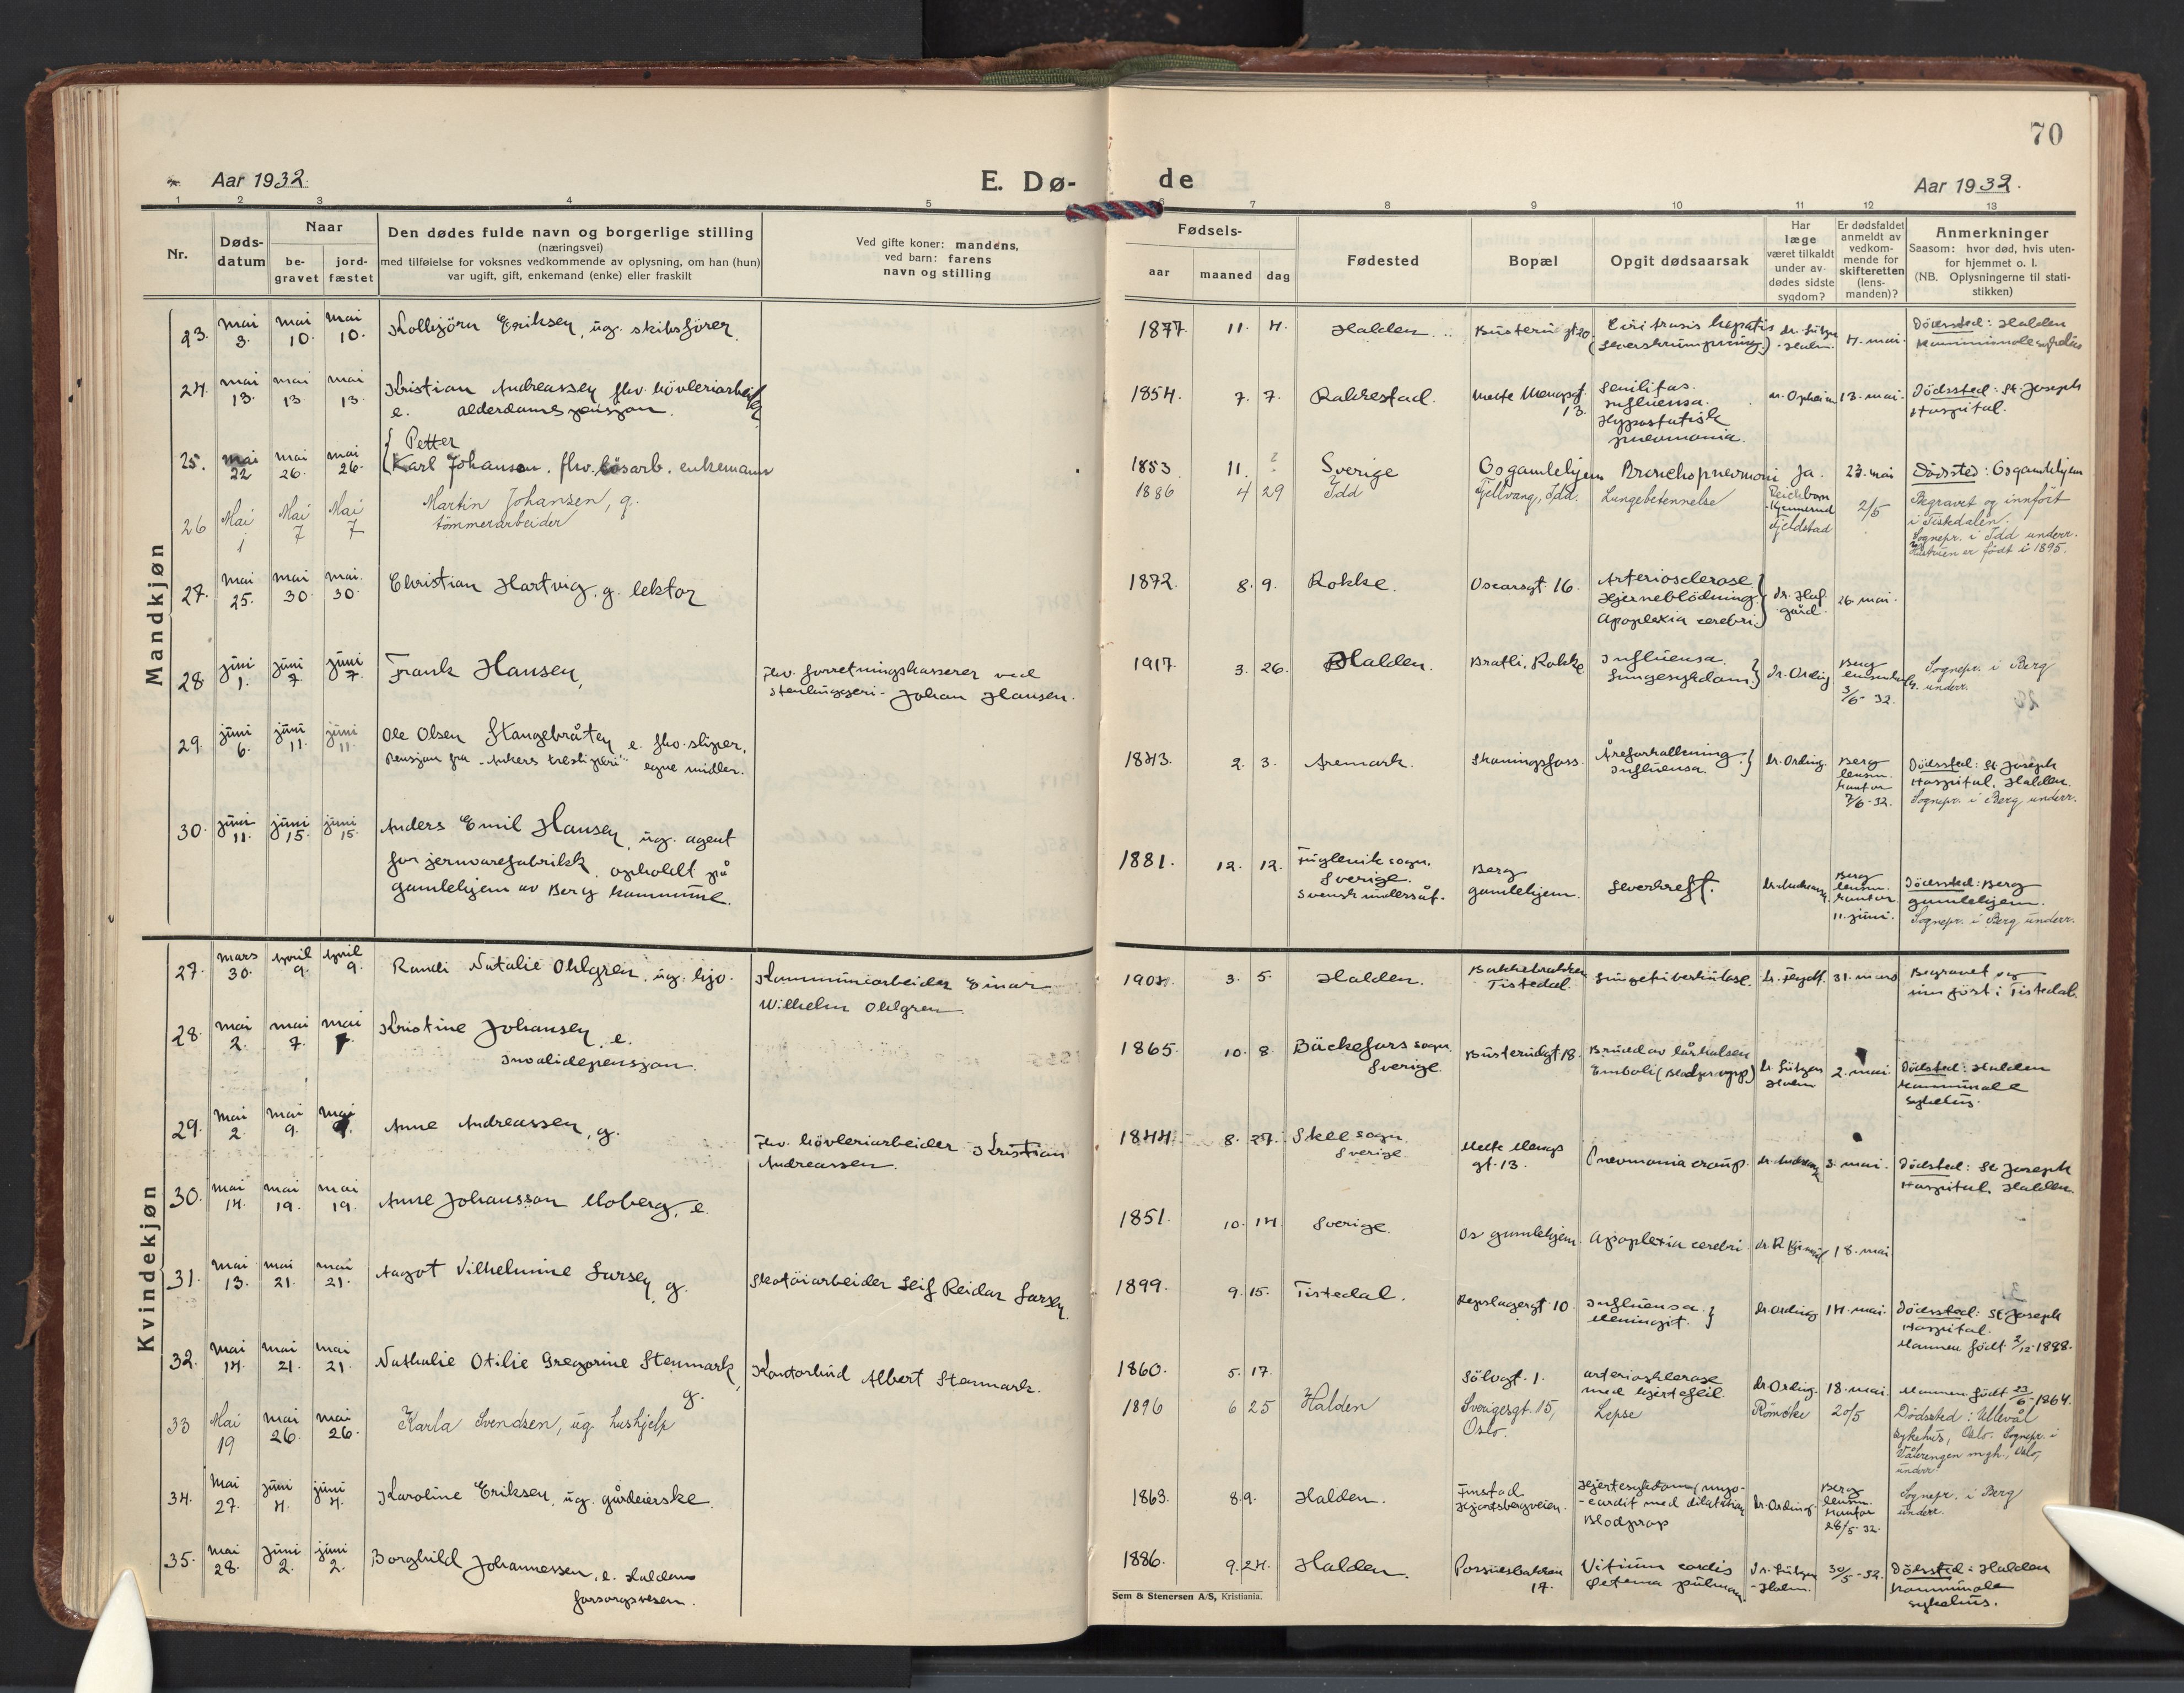 70
Aar 1932.
E. Dø-
de
Aar 1932.
1 2 3 4 5 6 7 8 9 10 11 12 13
Nr.
Døds-
datum
Naar
be-
gravet
jord-
fæstet
Den dødes fulde navn og borgerlige stilling
(næringsvei)
med tilføielse for voksnes vedkommende av oplysning, om han (hun)
var ugift, gift, enkemand (enke) eller fraskilt
Ved gifte koner: mandens,
ved barn: farens
navn og stilling
Fødsels-
aar
maaned
dag
Fødested
Bopæl
Opgit dødsaarsak
Har
læge
været tilkaldt
under av-
dødes sidste
sygdom?
Er dødsfaldet
anmeldt av
vedkom-
mende for
skifteretten
(lens-
manden)?
Anmerkninger
Saasom: hvor død, hvis uten-
for hjemmet o. l.
(NB. Oplysningerne til stati-
stikken)
Mandkjøn
23. mai 3. mai 10. mai 10. Kolbjörn Eriksen, ug. skibsfører.
1877. 11. 4. Halden. Busterudgt 20. Cirrhosis hepatis
(Leverskrumpning.) dr. Lützow
-Holm. 4. mai. Dödssted: Halden
kommunale sykehus
24. mai 13. mai 13. mai 13. Kristian Andreassen fhv. hövleriarbeider
e. alderdomspensjon.
1854. 7. 7. Rakkestad. Mette Mengsgt.
13. Senilitas.
Influensa.
Hypostatisk
pneumonia. dr. Opheim 13. mai. Dödssted: St. Joseph
Hospital.
25. mai 22 mai 26. mai 26. Petter
Karl Johanson. fhv. lösarb. enkemann
1853. 11. ? Sverige Os gamlehjem Bronchopnevmoni Ja. 23. mai Dödssted: Os gamlehjem
26 Mai 1 Mai 7 Mai 7 Martin Johansen, g.
tömmerarbeider
1886 4 29 Idd Fjellvang, Idd. Lungebetennelse Reichborn
-Kjennerud
Fjeldstad 2/5 Begravet og innfört
i Tistedalen.
Sognepr. i Idd underr.
Hustruen er født i 1895.
27. mai 25. mai 30. mai 30. Christian Hartvig. g. lektor
1872. 8. 9. Rokke. Oscarsgt 16. Arteriosclerose
Hjerneblödning.
Apoplexia cerebri. dr. Haf-
gård. 26. mai.
28 juni 1. juni 7. juni 7. Frank Hansen,
Fhv. forretningskasserer ved
Johan Hansen.
1917. 3. 26. Halden. Bratli, Rokke Influensa.
Lungesykdom. Dr. Ording Berg
3/6-32. Sognepr. i Berg
underr.
29. juni 6. juni 11. juni 11. Ole Olsen Stangebråten e. fhv. sliper.
Pensjon fra "Ankers tresliperi" egne midler.
1843. 2. 3. Aremark. Skaningsfoss. Åreforkalkning.
Influensa. dr. Ording. Berg
lensm.
kontor
7/6-32. Dödssted: St. Joseph
Hospital, Halden.
Sognepr. i Berg underr.
30. juni 11. juni 15. juni 15. Anders Emil Hansen, ug. agent
for jernvarefabrikk. opholdt på
gamlehjem av Berg kommune.
1881. 12. 12. sogn.
Sverige.
Svensk undersåt. Berg
gamlehjem. Leverkreft. Berg
lensm.
kontor
11. juni. Dödssted: Berg
gamlehjem.
Sognepr. i Berg underr.
Kvindekjøn
27. mars 30. April 9. April 9. Randi Natalie Ohlgren. ug. hjv.
Kommunearbeider Einar
Wilhelm Ohlgren.
1904. 3. 5. Halden. Bakkebrakken
Tistedal. Lungetuberkulose. 31. mars Begravet og
innfört i Tistedal.
28. mai 2. mai 7. mai 7. Kristine Johansen, e.
Invalidepensjon.
1865. 10. 8. Bäckefors sogn.
Sverige. Busterudgt 18. Brudd av lårhalsen
Emboli (Blodpropp) dr. Lützow
Holm 2. mai. Dödssted: Halden
kommunale
sykehus.
29. mai 2. mai 9. mai 9. Anne Andreassen, g.
Fhv. hövleriarbeider Kristian
Andreassen.
1844. 8. 27. Skee sogn.
Sverige. Mette Mengs
gt. 13. Pnevmonia croup. 3. mai. Dödssted: St. Joseph
Hospital, Halden.
30. mai 14. mai 19. mai 19. Anne Johansson Moberg, e.
1851. 10. 14 Sverige. Os gamlehjem. Apoplexia cerebri 18. mai
31. mai 13. mai 21. mai 21. Aagot Vilhelmine Larsen, g.
Skotöiarbeider Leif Reidar Larsen.
1899. 9. 15. Tistedal. Repslagergt 10. Influensa.
Meningit. dr Ording 14. mai. Dödssted: St Joseph
Hospital.
Mannen født 2/12-1898.
32. mai 14. mai 21. mai 21. Nathalie Otilie Gregorine Stenmark,
g.
Kontorbud Albert Stenmark.
1860. 5. 17. Sölvgt. 1. arteriosklerose
med hjertefeil. dr. Ording. 18. mai. Mannen født 23/6-1864.
33 Mai 19 mai 26. mai 26. Karla Svendsen, ug. hushjelp
1896 6 25 Halden Sverigesgt 15,
Oslo. Lepse Römcke 20/5 Dödssted: Ullevål
sykehus, Oslo. Sognepr. i
Vålerengen mgh., Oslo,
underr.
34. Mai 27. juni 4. juni 4. Karoline Eriksen, ug. gårdeierske.
1863. 8. 9. Halden. Fustad
Hjortsbergveien. Hjertesykdom (myo-
-cardit med dilatation
Blodprop dr. Ording. Berg
lensm.
kontor
28/5-32. Sognepr. i Berg
underr.
35. mai 28. juni 2. juni 2. Borghild Johannessen, e. Haldens
forsorgsvesen.
1886. 9. 24. Halden. Porsnesbakken
17. Vitium cordis
Oedema pulmon. Dr. Lützow
-Holm. 30/5-32. Dödssted: Halden
kommunale
sykehus.
Sem & Stenersen A/S, Kristiania.